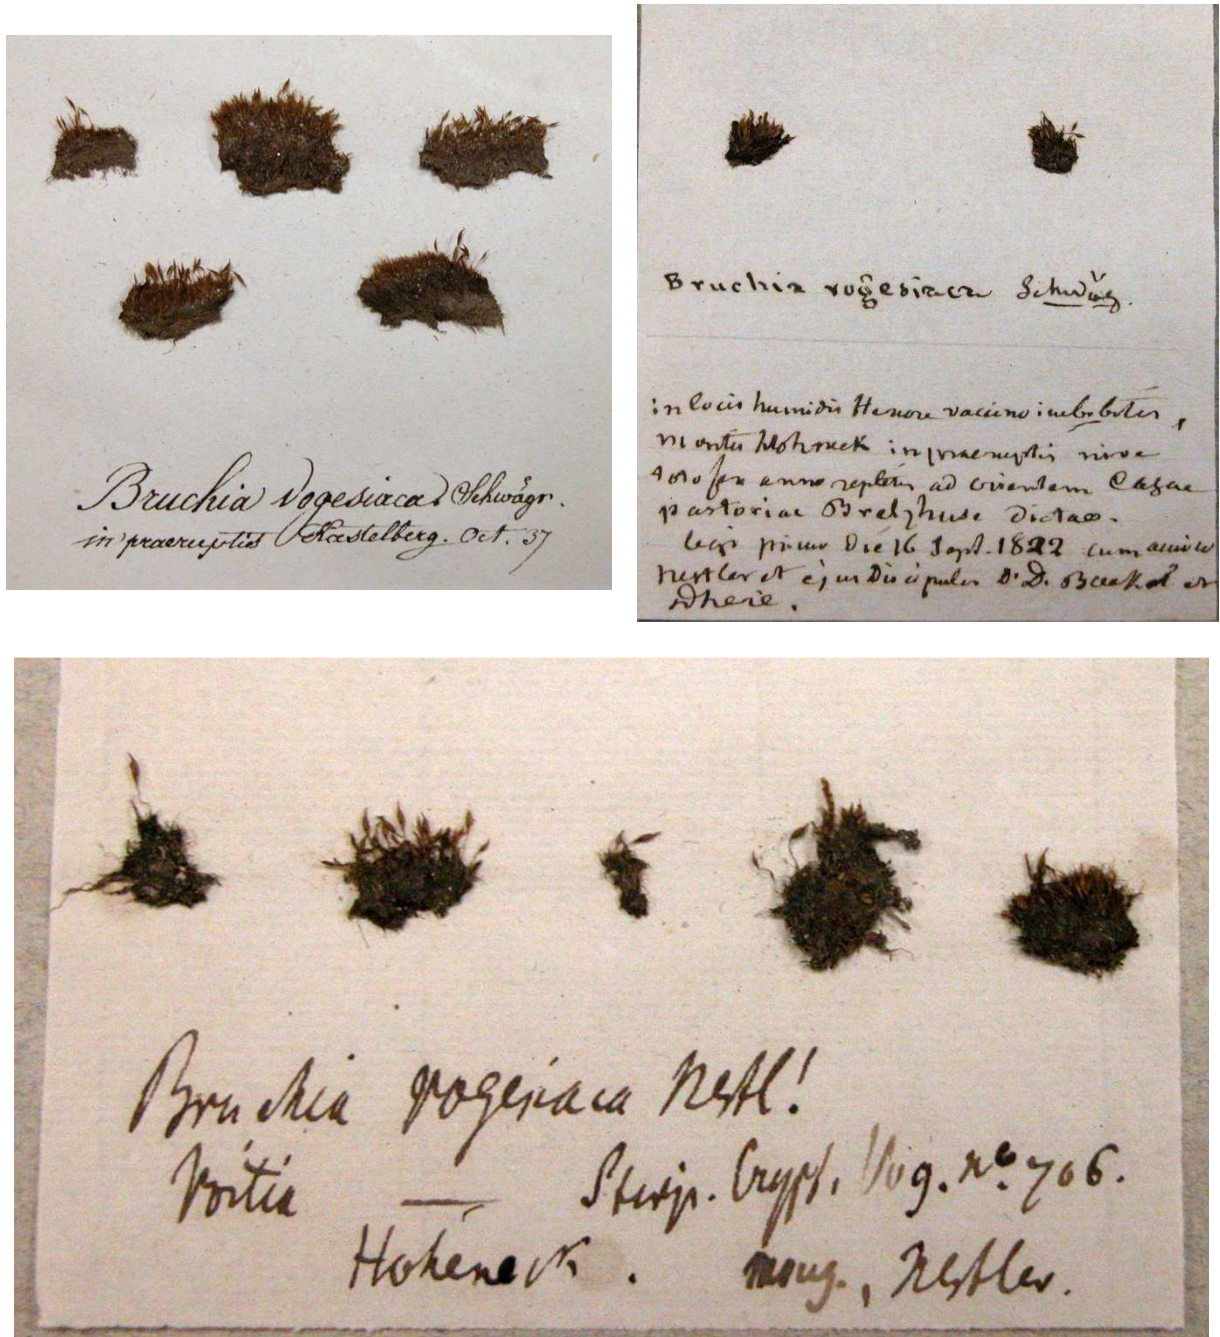 Bruchia Vogesiaca Schwägr.
in praeruptis Kastelberg. Oct. 37
Bruchia vogesiaca Schwäg.
in locis humidis stercore vaccino imbibitis,
montis Hohneck in praeruptis nive
fere anno repletis ad orientem Casae
pastoriae dictae.
legi primus die 16 Sept. 1822 cum amico
Nestler et ejus Discipulis D. D.
Bruchia vogesiaca Nestl!
Voitia — Stirp. Crypt. Vog. no. 706.
Hoheneck. moug., Nestler.